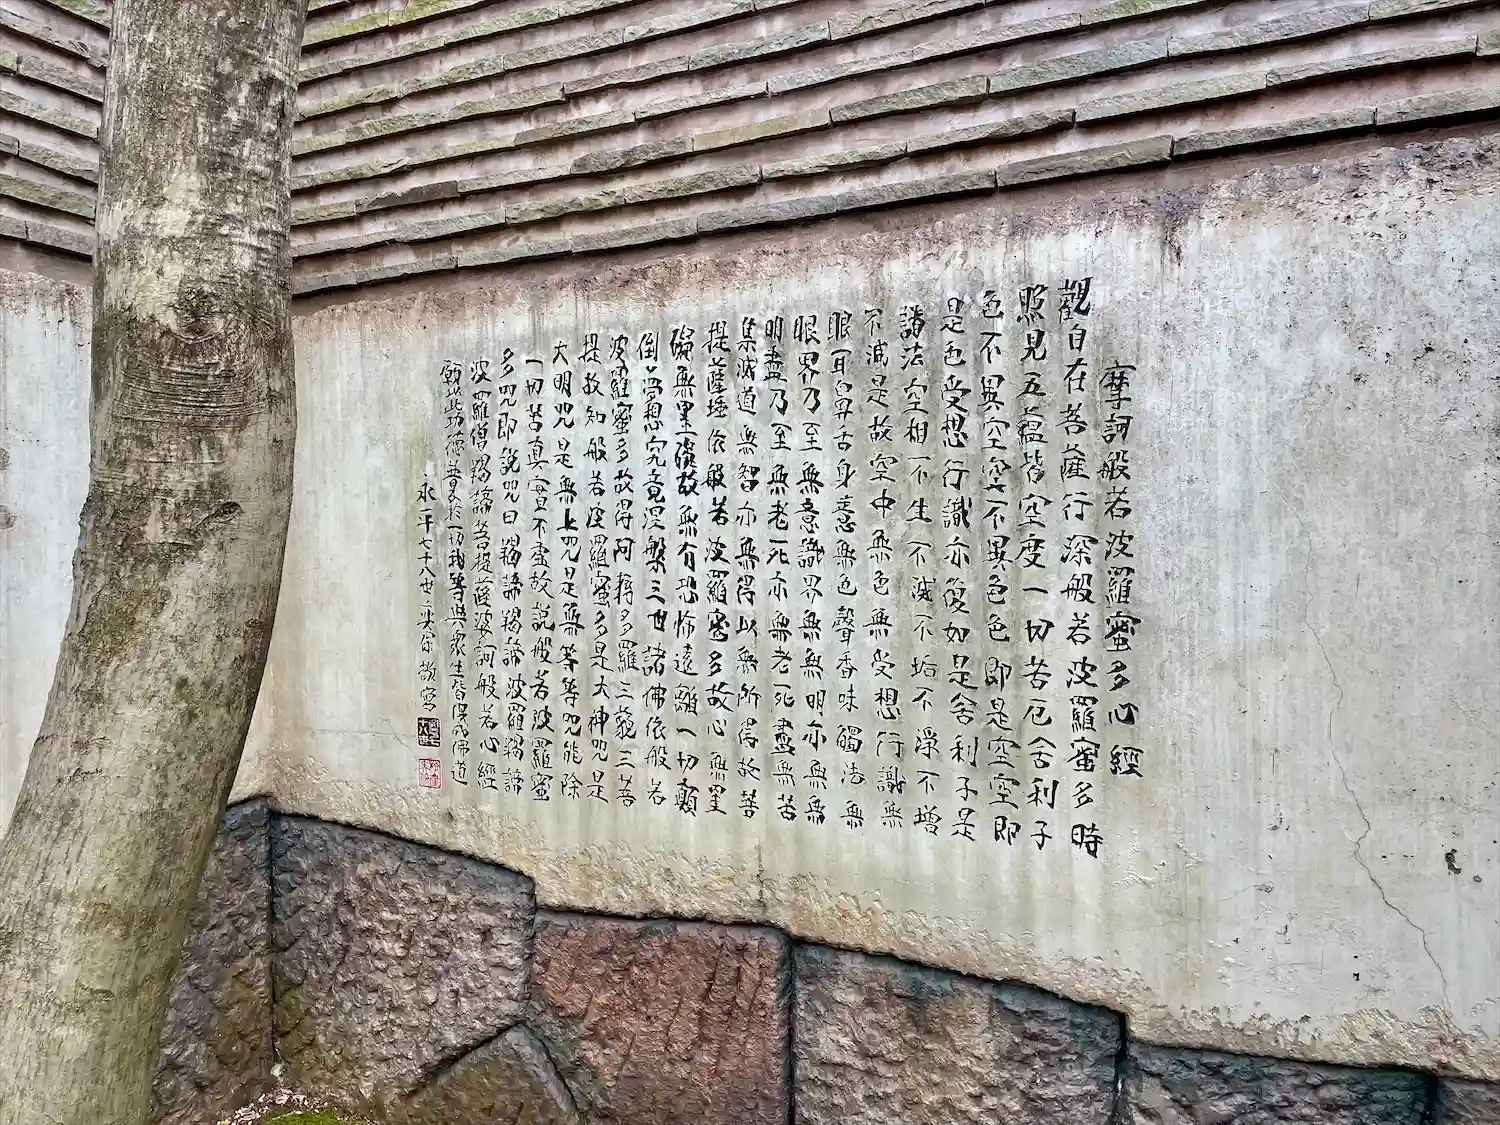 摩訶般若波羅蜜多心經
觀自在菩薩行深般若波羅蜜多時
照見五蘊皆空度一切苦厄舍利子
色不異空空不異色色即是空空即
是色受想行識亦復如是舍利子是
諸法空相不生不滅不垢不淨不增
不減是故空中無色無受想行識無
眼耳鼻舌身意無色聲香味觸法無
眼界乃至無意識界無無明亦無無
明盡乃至無老死亦無老死盡無苦
集滅道無智亦無得以無所得故菩
提薩埵依般若波羅蜜多故心無罣
礙無罣礙故無有恐怖遠離一切顛
倒夢想究竟涅槃三世諸佛依般若
波羅蜜多故得阿耨多羅三藐三菩
提故知般若波羅蜜多是大神咒是
大明咒是無上咒是無等等咒能除
一切苦真實不虛故說般若波羅蜜
多呪即說呪曰羯諦羯諦波羅羯諦
波羅僧羯諦菩提薩婆訶般若心經
願以此功德普及於一切我等與眾生皆共成佛道
永平七十八世奕保敬寫